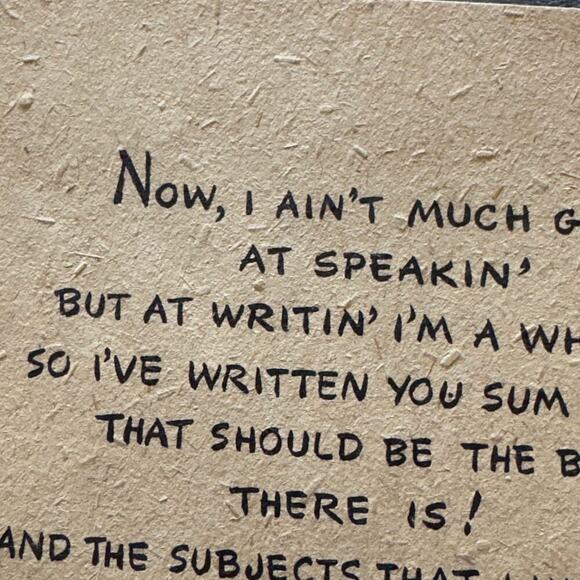 Now, I AIN'T MUCH
AT SPEAKIN'
BUT AT WRITIN' I'M A
SO I'VE WRITTEN YOU SUM
THAT SHOULD BE THE
THERE IS!
AND THE SUBJECTS THAT